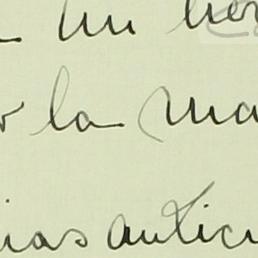 un her
la ma
ias antici